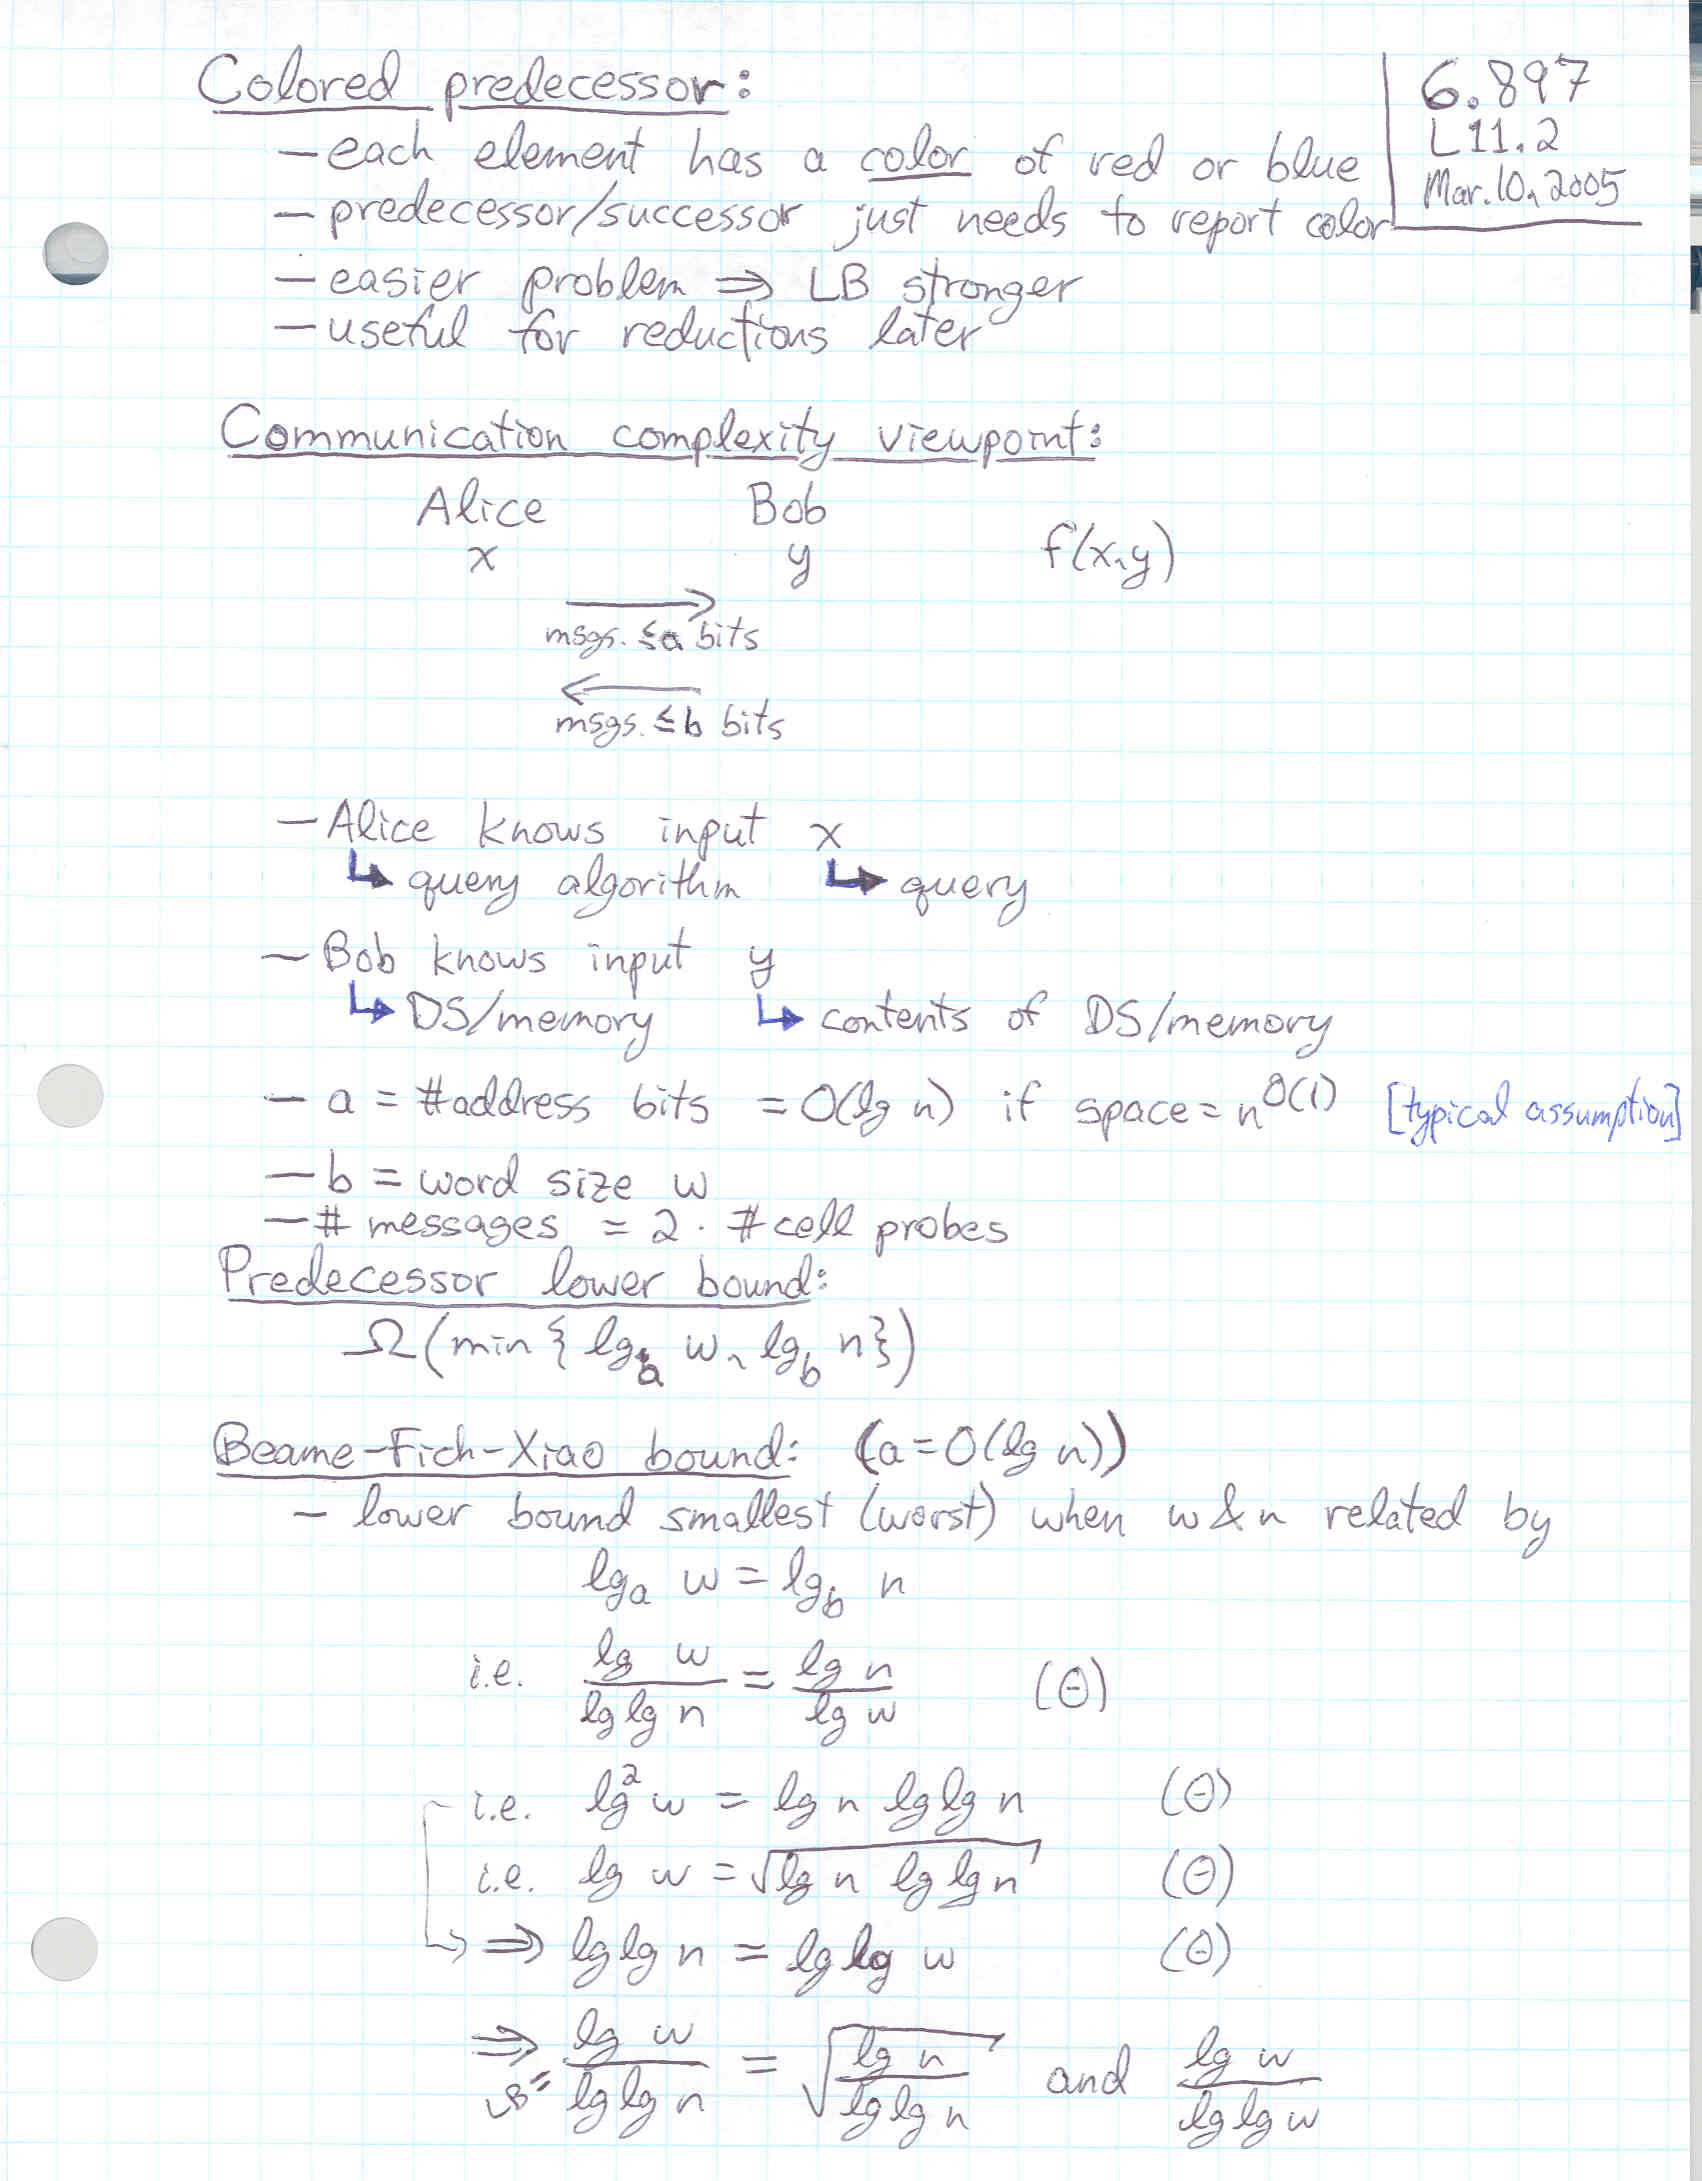 Colored predecessor:
6.897
L11.2
Mar. 10, 2005
– each element has a color of red or blue
– predecessor/successor just needs to report color
– easier problem ⇒ LB stronger
– useful for reductions later
Communication complexity viewpoint:
Alice Bob
x y f(x,y)
→
msgs. ≤a bits
←
msgs. ≤b bits
– Alice knows input x
↳ query algorithm ↳ query
– Bob knows input y
↳ DS/memory ↳ contents of DS/memory
– a = #address bits = O(lg n) if space = n^O(1) [typical assumption]
– b = word size w
– # messages = 2 · # cell probes
Predecessor lower bound:
Ω(min{lg_a w, lg_b n})
Beame-Fich-Xiao bound: (a = O(lg n))
– lower bound smallest (worst) when w & n related by
lg_a w = lg_b n
i.e. lg w / lg lg n = lg n / lg w (Θ)
i.e. lg² w = lg n lg lg n (Θ)
i.e. lg w = √(lg n lg lg n) (Θ)
⇒ lg lg n = lg lg w (Θ)
⇒ LB = lg w / lg lg n = √(lg n / lg lg n) and lg w / lg lg w